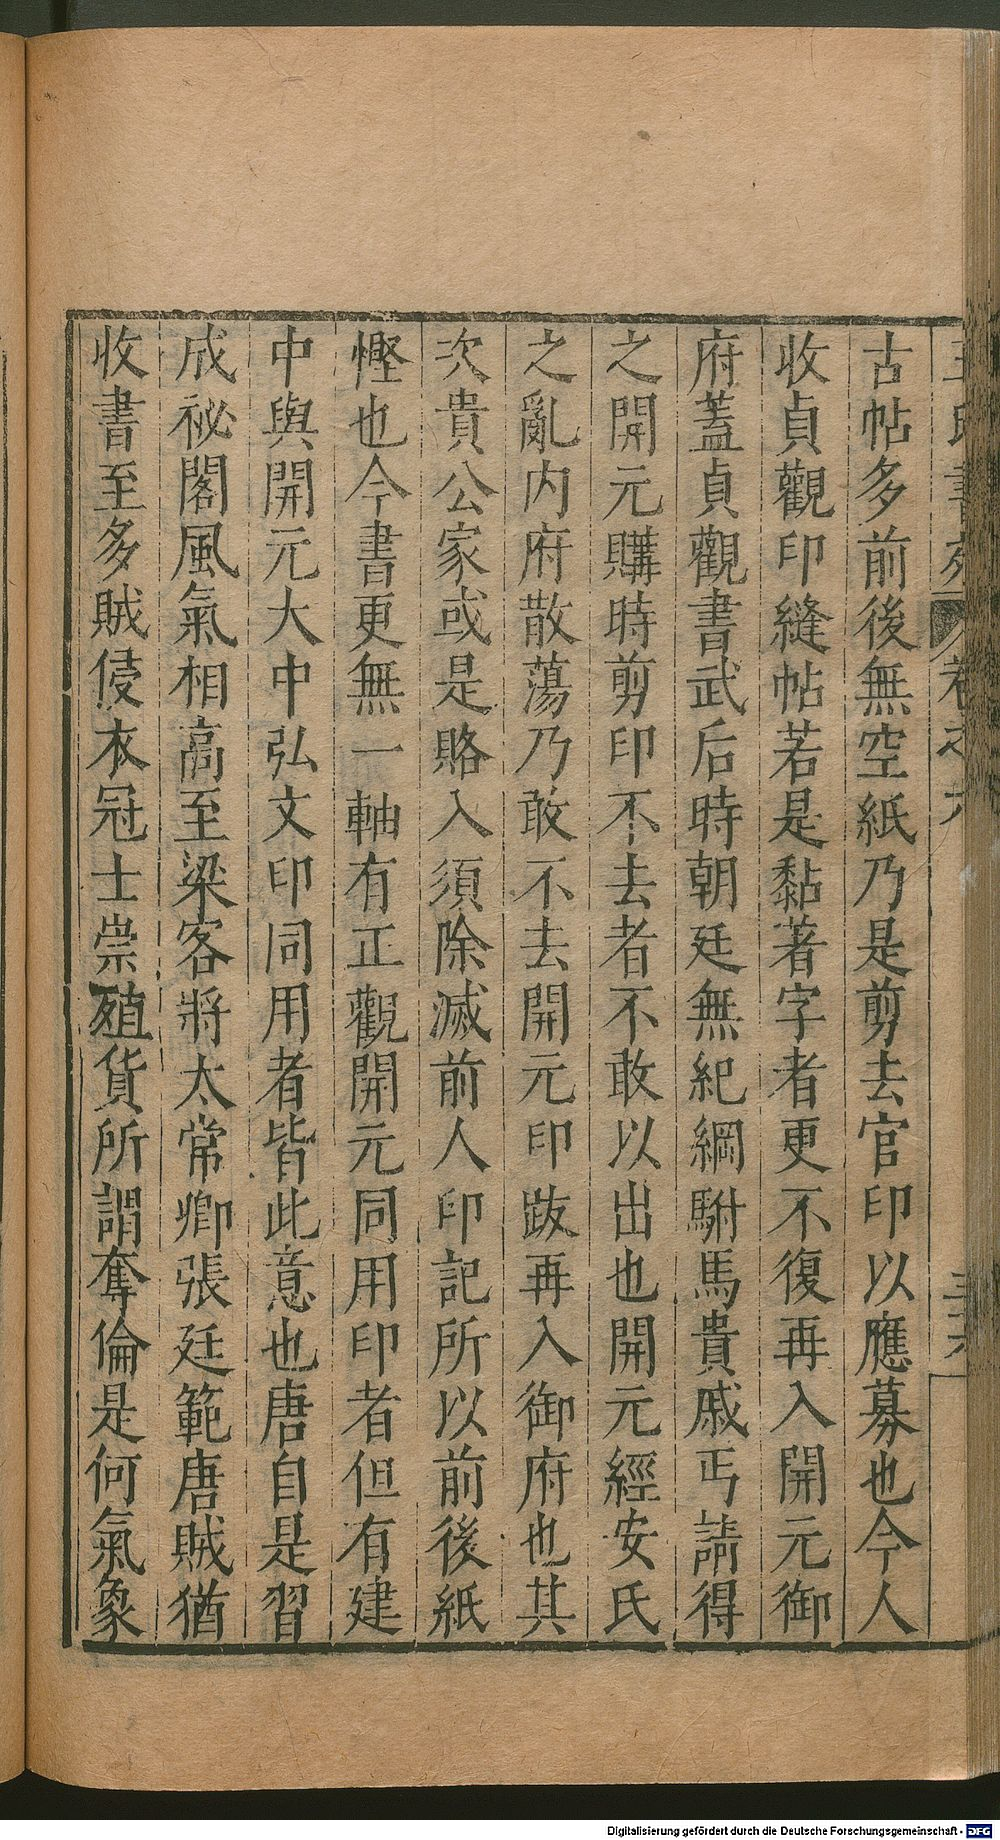 古帖多前後無空紙乃是剪去官印以應募也今人
收貞觀印縫帖若是黏著字者更不復再入開元御
府蓋貞觀書武后時朝廷無紀綱駙馬貴戚丐請得
之開元購時剪印不去者不敢以出也開元經安氏
之亂内府散蕩乃敢不去開元印跋再入御府也其
次貴公家或是賂入須除滅前人印記所以前後紙
慳也今書更無一軸有正觀開元同用印者但有建
中與開元大中弘文印同用者皆此意也唐自是習
成祕閣風氣相高至梁客將太常卿張廷範唐賊猶
收書至多賊侵衣冠士崇殖貨所謂奪倫是何氣象
Digitalisierung gefördert durch die Deutsche Forschungsgemeinschaft - DFG